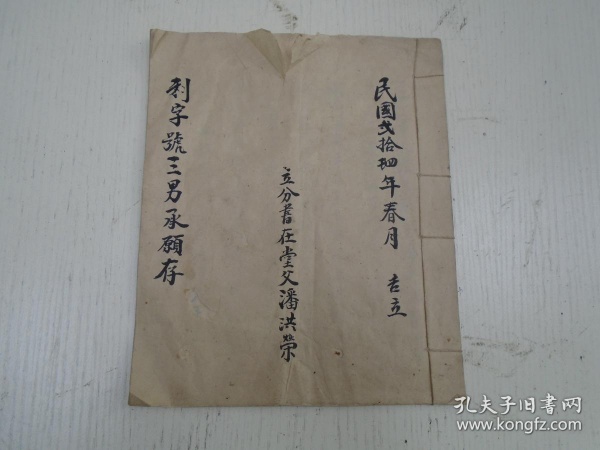 民國弍拾肆年春月 吉立
立分書在堂父潘洪榮
利字號三男承願存
孔夫子旧書网
www.kongfz.com